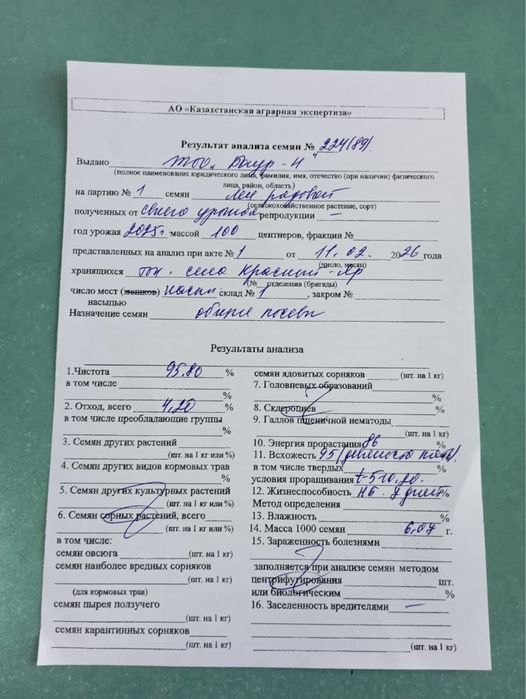 АО «Казахстанская аграрная экспертиза»
Результат анализа семян № 224(89)
Выдано ТОО "Баур-Н"
(полное наименование юридического лица, фамилия, имя, отчество (при наличии) физического
лица, район, область)
на партию № 1 семян лен рядовой
(сельскохозяйственное растение, сорт)
полученных от своего урожая репродукции —
год урожая 2025г массой 100 центнеров, фракции №
представленных на анализ при акте № 1 от 11.02. 2026 года
(число, месяц)
хранящихся село Красный-Яр
(№ отделения (бригады)
число мест (мешков) насып склад № 1, закром №
насыпью
Назначение семян посевы
Результаты анализа
1.Чистота 95,80 %
в том числе
%
2. Отход, всего 4,20 %
в том числе преобладающие группы
%
3. Семян других растений
(шт. на 1 кг или %)
4. Семян других видов кормовых трав
%
5. Семян других культурных растений
(шт. на 1 кг или %)
6. Семян сорных растений, всего
(шт. на 1 кг или %)
в том числе:
семян овсюга (шт. на 1 кг)
семян наиболее вредных сорняков
(шт. на 1 кг)
(для кормовых трав)
семян пырея ползучего
(шт. на 1 кг)
семян карантинных сорняков
(шт. на 1 кг)
семян ядовитых сорняков (шт. на 1 кг)
7. Головневых образований
%
8. Склероциев %
9. Галлов пшеничной нематоды
(шт. на 1 кг)
10. Энергия прорастания 86 %
11. Всхожесть 95 (девяносто пять)
в том числе твердых %
условия проращивания t-5-10,20.
12. Жизнеспособность НБ. 7 дней %
Метод определения
13. Влажность %
14. Масса 1000 семян 6,07 г.
15. Зараженность болезнями
заполняется при анализе семян методом
центрифугирования шт.
или биологическим %
16. Заселенность вредителями —
(шт. на 1 кг)